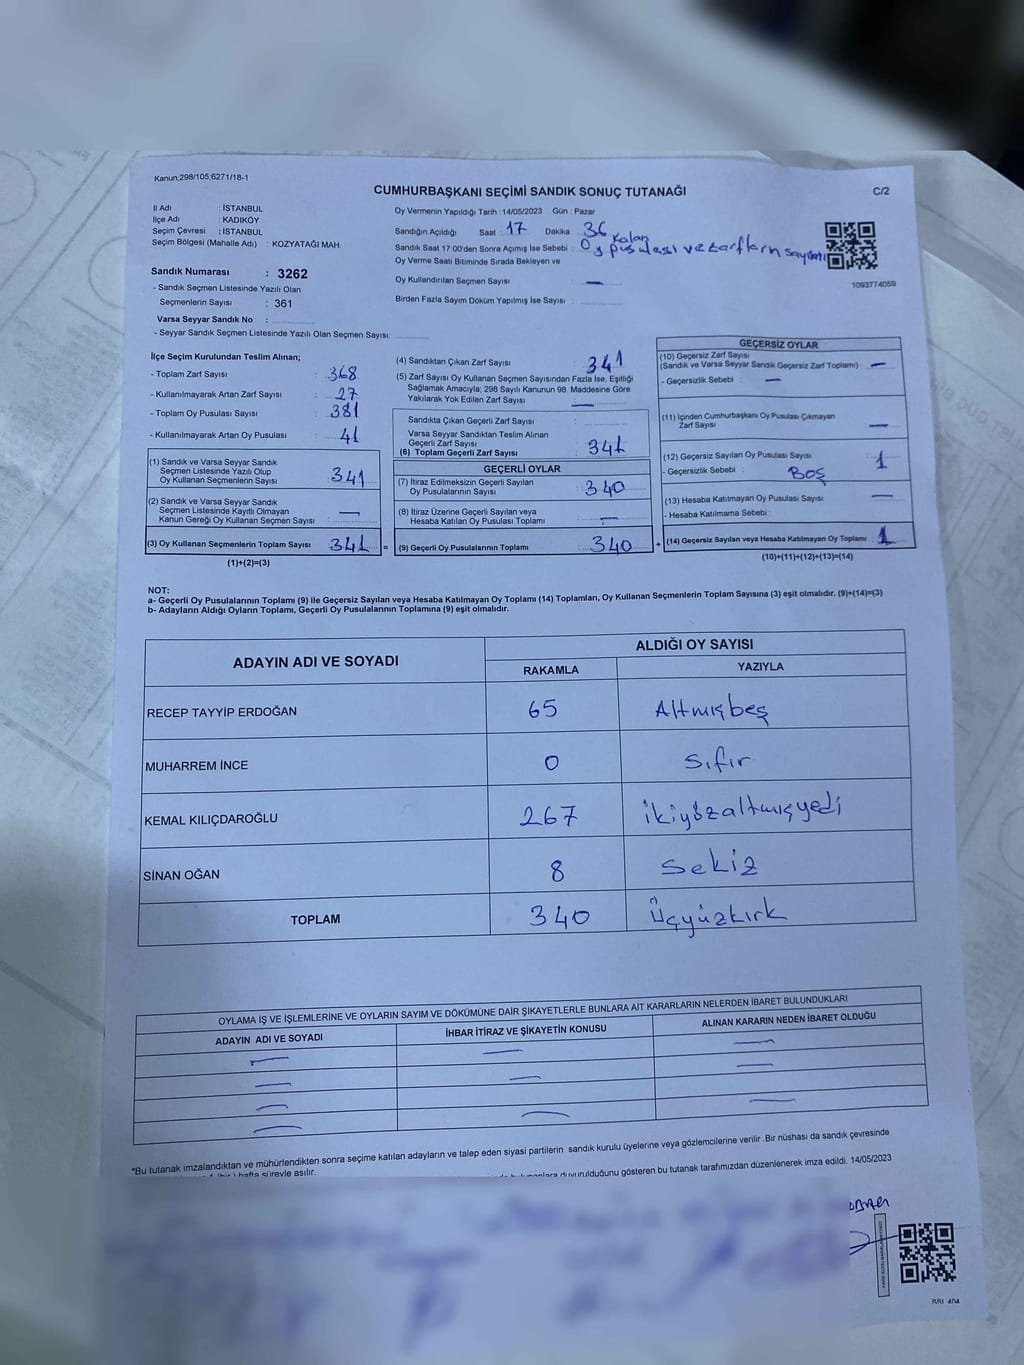 Kanun,298/105,6271/18-1
CUMHURBAŞKANI SEÇİMİ SANDIK SONUÇ TUTANAĞI
C/2
İl Adı : İSTANBUL
İlçe Adı : KADIKÖY
Seçim Çevresi : İSTANBUL
Seçim Bölgesi (Mahalle Adı) : KOZYATAĞI MAH.
Oy Vermenin Yapıldığı Tarih : 14/05/2023 Gün : Pazar
Sandığın Açıldığı Saat 17 Dakika : 36
Sandık Saat 17:00'den Sonra Açılmış İse Sebebi : Kalan Oy pusulası ve zarfların sayımı
Oy Verme Saati Bitiminde Sırada Bekleyen ve
Oy Kullandırılan Seçmen Sayısı : —
Birden Fazla Sayım Döküm Yapılmış İse Sayısı :
1093774059
Sandık Numarası : 3262
- Sandık Seçmen Listesinde Yazılı Olan
Seçmenlerin Sayısı : 361
Varsa Seyyar Sandık No :
- Seyyar Sandık Seçmen Listesinde Yazılı Olan Seçmen Sayısı:
İlçe Seçim Kurulundan Teslim Alınan;
- Toplam Zarf Sayısı : 368
- Kullanılmayarak Artan Zarf Sayısı : 27
- Toplam Oy Pusulası Sayısı : 381
- Kullanılmayarak Artan Oy Pusulası : 41
(1) Sandık ve Varsa Seyyar Sandık
Seçmen Listesinde Yazılı Olup
Oy Kullanan Seçmenlerin Sayısı : 341
(2) Sandık ve Varsa Seyyar Sandık
Seçmen Listesinde Kayıtlı Olmayan
Kanun Gereği Oy Kullanan Seçmen Sayısı : —
(3) Oy Kullanan Seçmenlerin Toplam Sayısı : 341 =
(1)+(2)=(3)
(4) Sandıktan Çıkan Zarf Sayısı : 341
(5) Zarf Sayısı Oy Kullanan Seçmen Sayısından Fazla İse, Eşitliği
Sağlamak Amacıyla; 298 Sayılı Kanunun 98. Maddesine Göre
Yakılarak Yok Edilen Zarf Sayısı : —
Sandıkta Çıkan Geçerli Zarf Sayısı :
Varsa Seyyar Sandıktan Teslim Alınan
Geçerli Zarf Sayısı :
(6) Toplam Geçerli Zarf Sayısı : 341
GEÇERLİ OYLAR
(7) İtiraz Edilmeksizin Geçerli Sayılan
Oy Pusulalarının Sayısı : 340
(8) İtiraz Üzerine Geçerli Sayılan veya
Hesaba Katılan Oy Pusulası Toplamı : —
(9) Geçerli Oy Pusulalarının Toplamı : 340 +
GEÇERSİZ OYLAR
(10) Geçersiz Zarf Sayısı
(Sandık ve Varsa Seyyar Sandık Geçersiz Zarf Toplamı) : —
- Geçersizlik Sebebi : —
(11) İçinden Cumhurbaşkanı Oy Pusulası Çıkmayan
Zarf Sayısı : —
(12) Geçersiz Sayılan Oy Pusulası Sayısı : 1
- Geçersizlik Sebebi : BOŞ
(13) Hesaba Katılmayan Oy Pusulası Sayısı : —
- Hesaba Katılmama Sebebi :
(14) Geçersiz Sayılan veya Hesaba Katılmayan Oy Toplamı : 1
(10)+(11)+(12)+(13)=(14)
NOT:
a- Geçerli Oy Pusulalarının Toplamı (9) ile Geçersiz Sayılan veya Hesaba Katılmayan Oy Toplamı (14) Toplamları, Oy Kullanan Seçmenlerin Toplam Sayısına (3) eşit olmalıdır. (9)+(14)=(3)
b- Adayların Aldığı Oyların Toplamı, Geçerli Oy Pusulalarının Toplamına (9) eşit olmalıdır.
ADAYIN ADI VE SOYADI
ALDIĞI OY SAYISI
RAKAMLA YAZIYLA
RECEP TAYYİP ERDOĞAN 65 Altmışbeş
MUHARREM İNCE 0 Sıfır
KEMAL KILIÇDAROĞLU 267 ikiyüzaltmışyedi
SİNAN OĞAN 8 Sekiz
TOPLAM 340 Üçyüzkırk
OYLAMA İŞ VE İŞLEMLERİNE VE OYLARIN SAYIM VE DÖKÜMÜNE DAİR ŞİKAYETLERLE BUNLARA AİT KARARLARIN NELERDEN İBARET BULUNDUKLARI
ADAYIN ADI VE SOYADI İHBAR İTİRAZ VE ŞİKAYETİN KONUSU ALINAN KARARIN NEDEN İBARET OLDUĞU
*Bu tutanak imzalandıktan ve mühürlendikten sonra seçime katılan adayların ve talep eden siyasi partilerin sandık kurulu üyelerine veya gözlemcilerine verilir Bir nüshası da sandık çevresinde
hafta süreyle asılır.
duyurulduğunu gösteren bu tutanak tarafımızdan düzenlenerek imza edildi. 14/05/2023